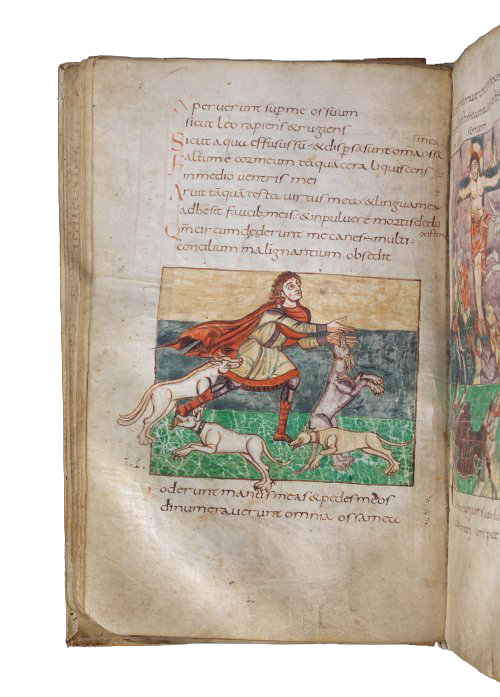 Aperuerunt sup me os suum
sicut leo rapiens & rugiens
mea
Sicut aqua effusus sū · & dispsa sunt omnia ossa
Factum ē cor meum tāquā cera liquiscens
in medio uentris mei
Aruit tāquā testa uirtus mea · & lingua mea
adhesit faucib; meis · & in puluere mortis dedu
xisti me
Qm circumdederunt me canes multi ·
concilium malignantium obsedit
Foderunt manus meas & pedes meos
dinumerauerunt omnia ossa mea